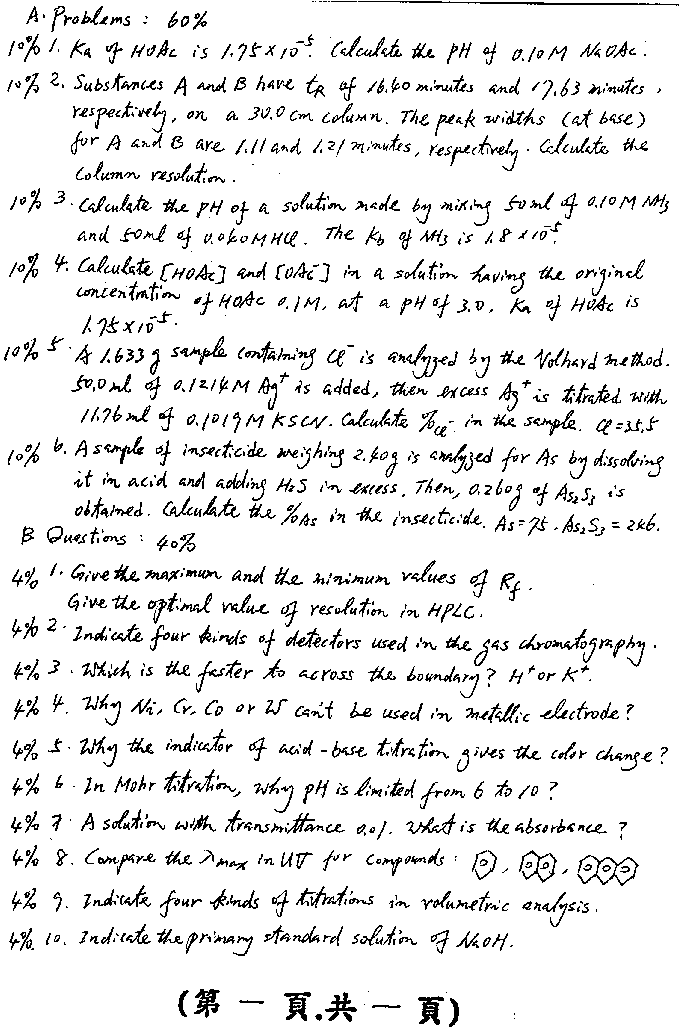 A. Problems : 60%
10% 1. Ka of HOAc is 1.75×10⁻⁵. Calculate the pH of 0.10 M NaOAc.
10% 2. Substances A and B have tR of 16.40 minutes and 17.63 minutes,
respectively, on a 30.0 cm column. The peak widths (at base)
for A and B are 1.11 and 1.21 minutes, respectively. Calculate the
column resolution.
10% 3. Calculate the pH of a solution made by mixing 50ml of 0.10 M NH₃
and 50ml of 0.040 M HCl. The Kb of NH₃ is 1.8×10⁻⁵.
10% 4. Calculate [HOAc] and [OAc⁻] in a solution having the original
concentration of HOAc 0.1M, at a pH of 3.0. Ka of HOAc is
1.75×10⁻⁵.
10% 5. A 1.633 g sample containing Cl⁻ is analyzed by the Volhard method.
50.0 ml of 0.1214 M Ag⁺ is added, then excess Ag⁺ is titrated with
11.76 ml of 0.1019 M KSCN. Calculate %Cl⁻ in the sample. Cl=35.5
10% 6. A sample of insecticide weighing 2.40g is analyzed for As by dissolving
it in acid and adding H₂S in excess. Then, 0.260g of As₂S₃ is
obtained. Calculate the %As in the insecticide. As=75. As₂S₃=246.
B Questions : 40%
4% 1. Give the maximum and the minimum values of Rf.
Give the optimal value of resolution in HPLC.
4% 2. Indicate four kinds of detectors used in the gas chromatography.
4% 3. Which is the faster to across the boundary? H⁺ or K⁺.
4% 4. Why Ni, Cr, Co or W can't be used in metallic electrode?
4% 5. Why the indicator of acid-base titration gives the color change?
4% 6. In Mohr titration, why pH is limited from 6 to 10?
4% 7. A solution with transmittance 0.01. What is the absorbance?
4% 8. Compare the λmax in UV for compounds: , , .
4% 9. Indicate four kinds of titrations in volumetric analysis.
4% 10. Indicate the primary standard solution of NaOH.
(第一頁.共一頁)